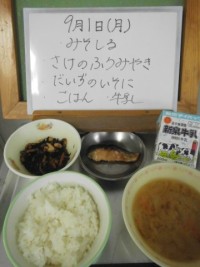 9月1日(月)
みそしる
さけのふうみやき
だいずのいそに
ごはん 牛乳
牛乳